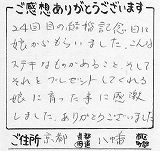 ご感想ありがとうございます
24回目の結婚記念日に
娘からもらいました。こんな
ステキなものがあること、そして
それをプレゼントしてくれる
娘に育った事に感激
しました。ありがとうございました
ご住所 京都 都道府県 八幡 市区町村